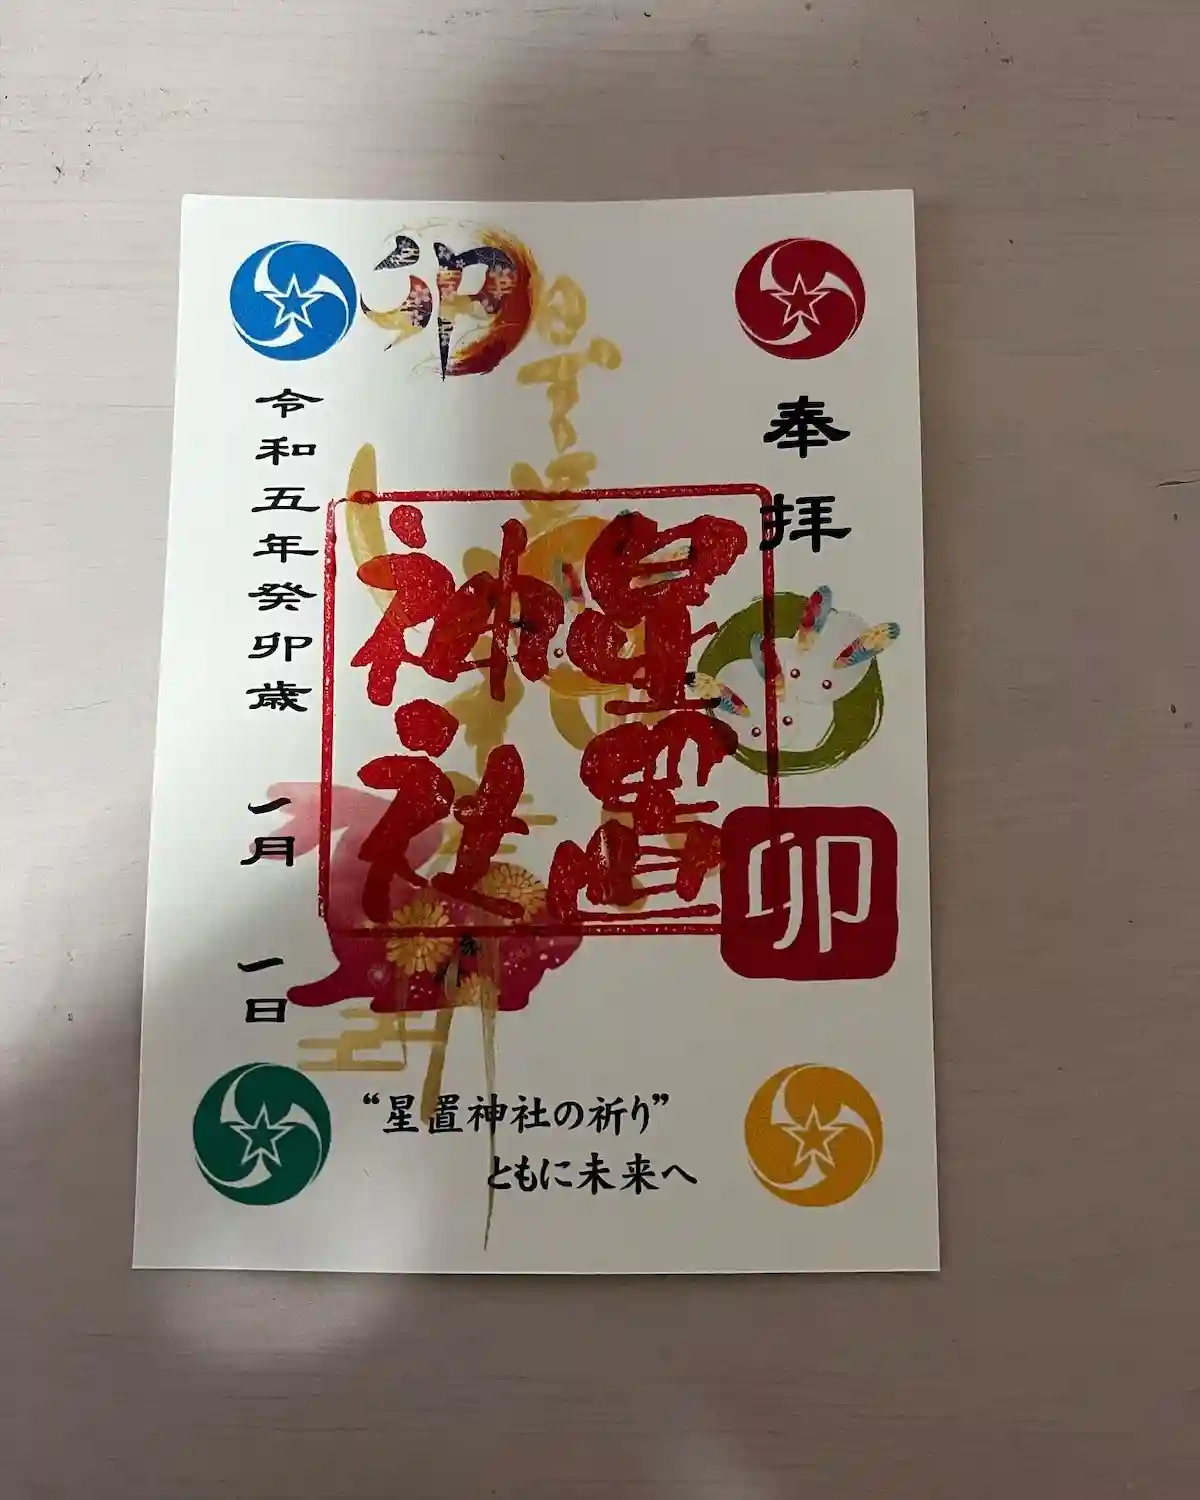 奉拝
卯
星置
神社
卯
令和五年癸卯歳 一月 一日
“星置神社の祈り”
ともに未来へ